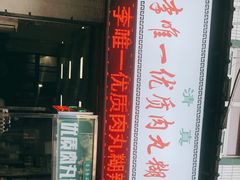 清真
李唯一优质肉丸糊
李唯一优质肉丸糊
优质肉丸